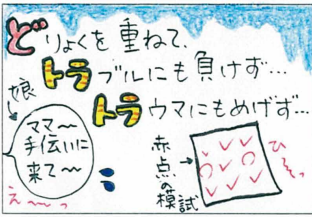 どりょくを重ねて、
トラブルにも負けず…
トラウマにもめげず…
娘
ママ〜
手伝いに
来て〜
え〜っ
赤点の模試
ひぇ〜っ